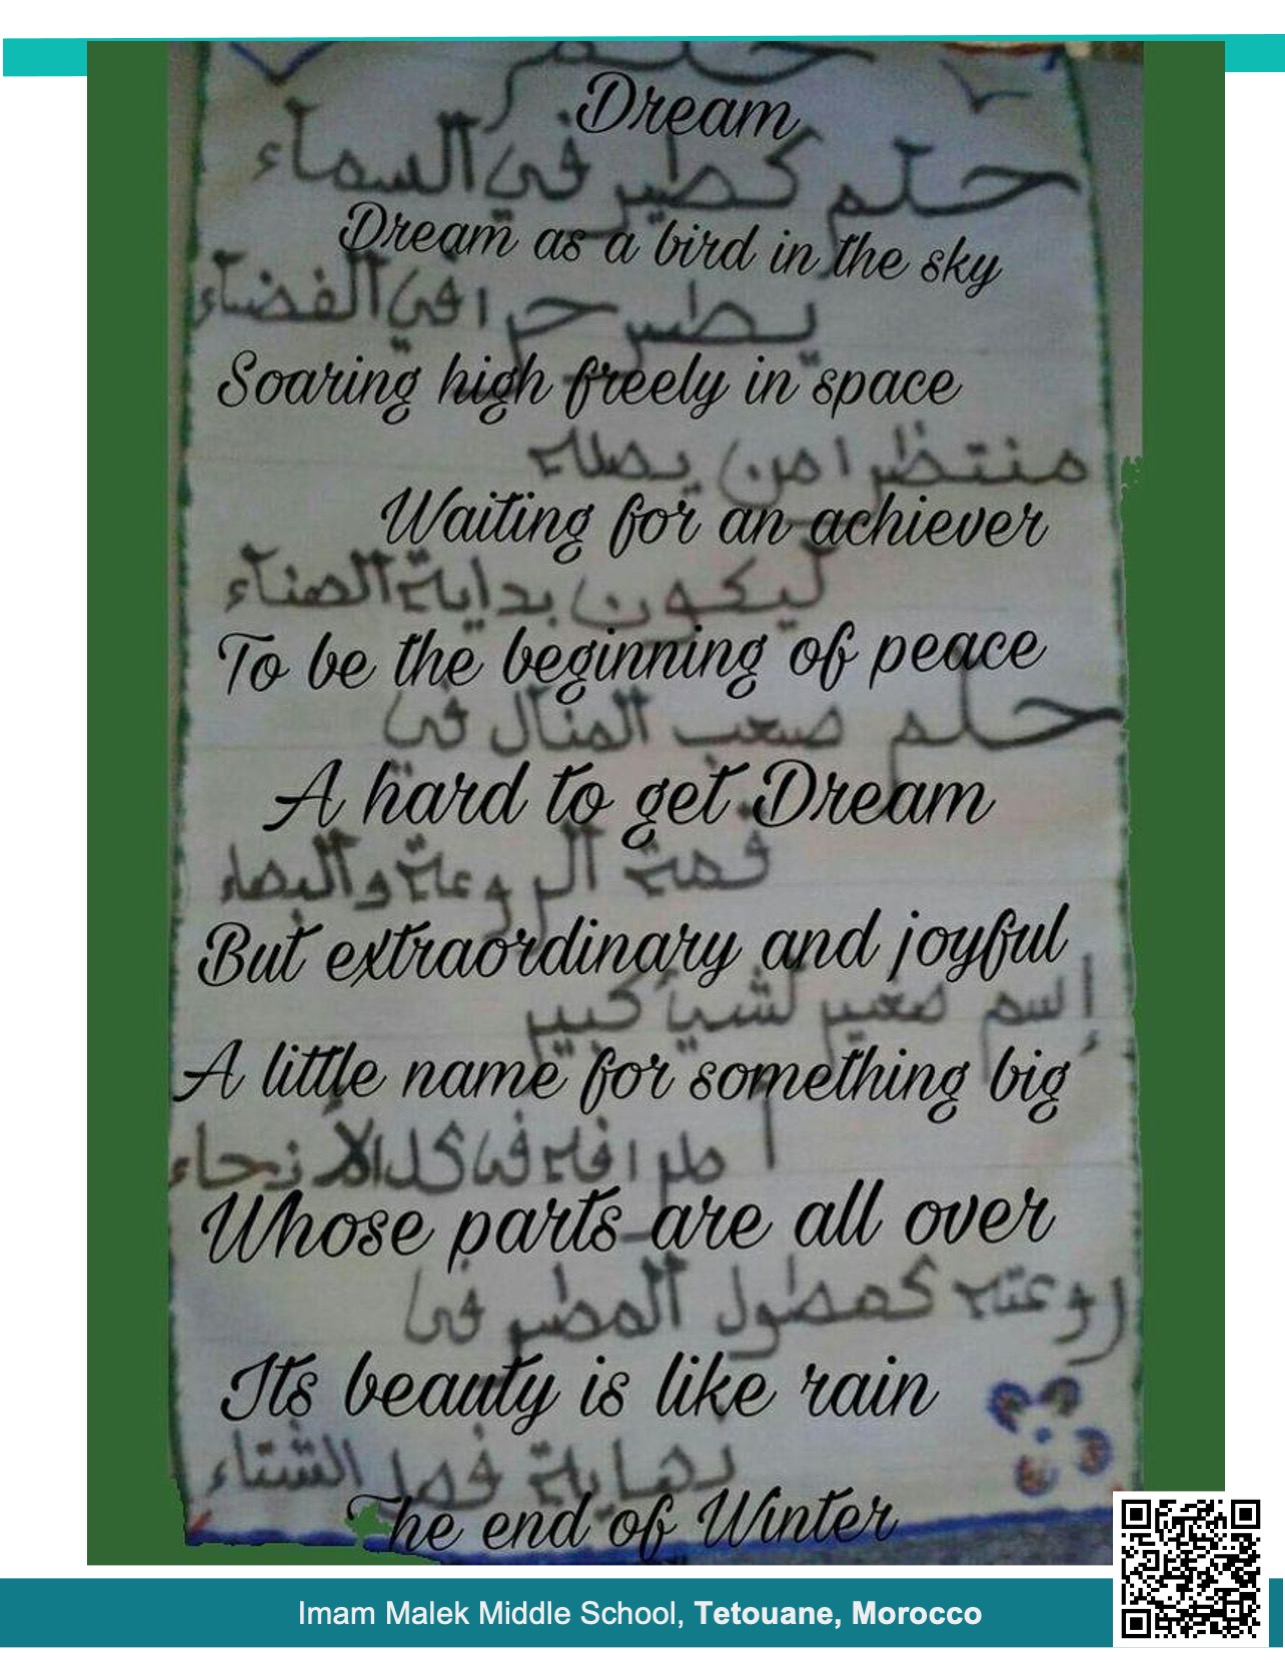 حلم
Dream
حلم كطير في السماء
Dream as a bird in the sky
يطير حرا في الفضاء
Soaring high freely in space
منتظرا من يصله
Waiting for an achiever
ليكون بداية الهناء
To be the beginning of peace
حلم صعب المنال في
A hard to get Dream
قمة الروعة والبهاء
But extraordinary and joyful
إسم صغير لشيأ كبير
A little name for something big
أطرافه في كل الأنحاء
Whose parts are all over
روعته كهطول المطر في
Its beauty is like rain
نهاية فصل الشتاء
The end of Winter
Imam Malek Middle School, Tetouane, Morocco